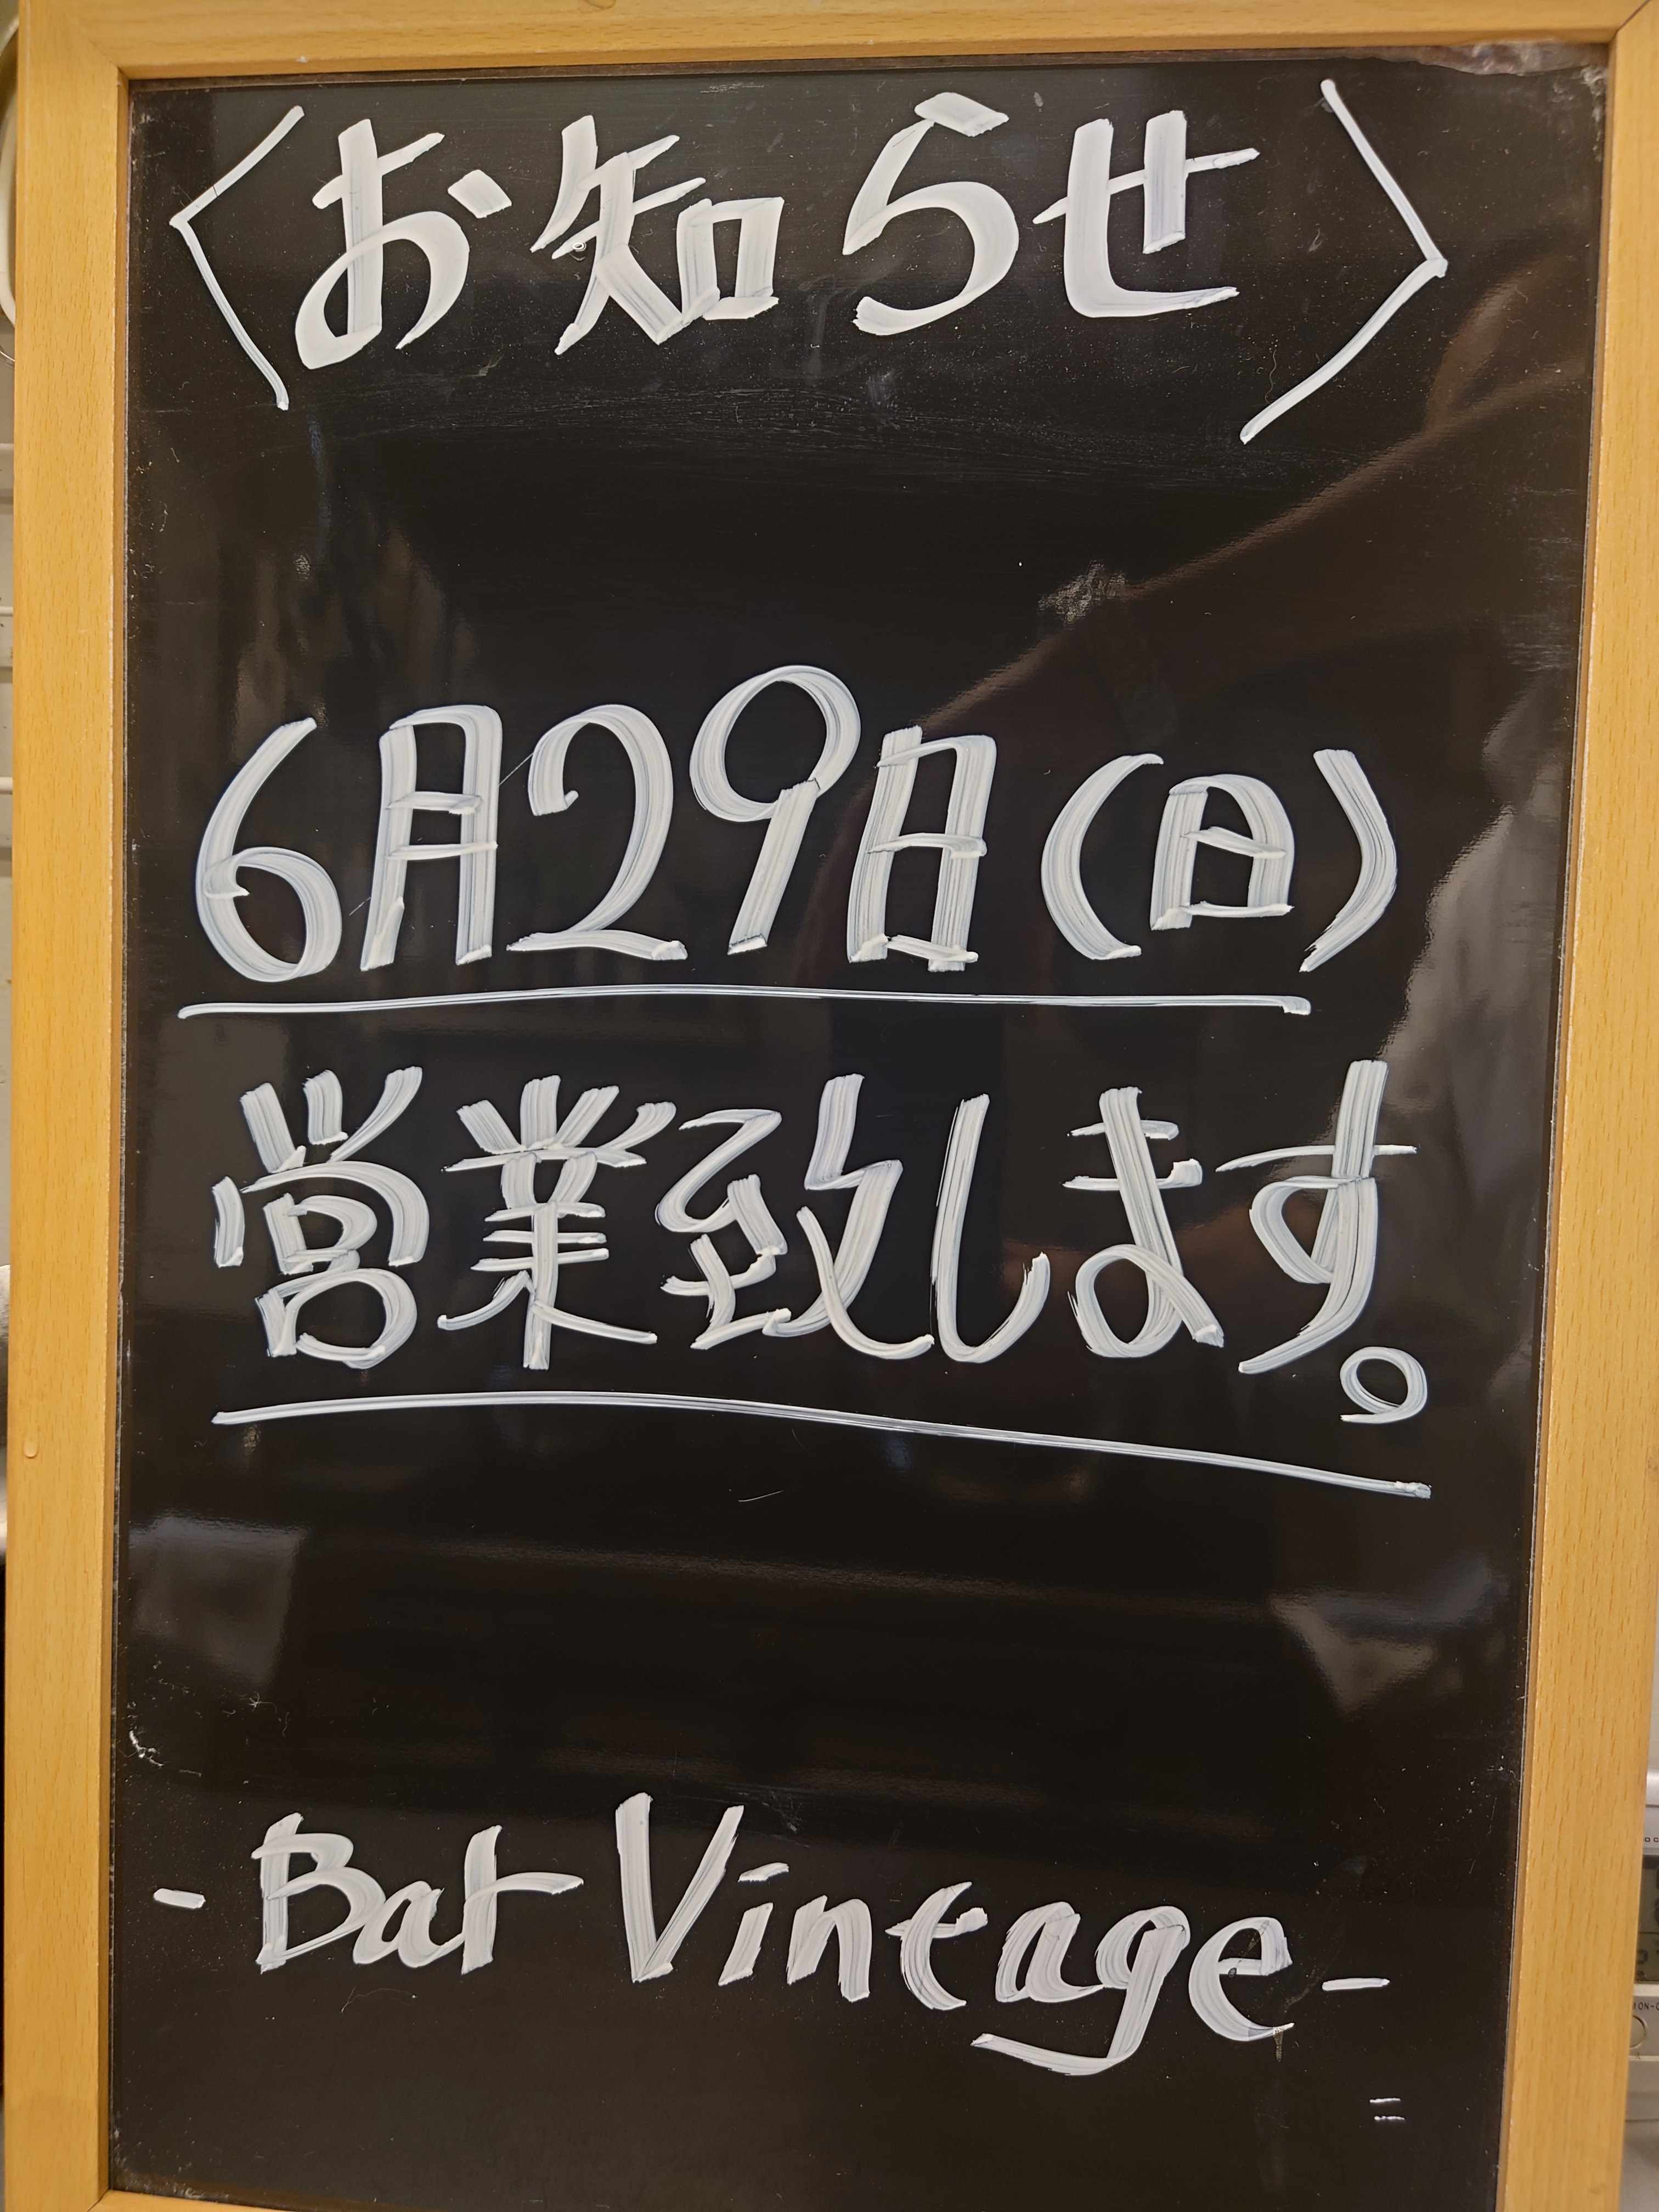 〈お知らせ〉
6月29日(日)
営業致します。
-Bat Vintage-